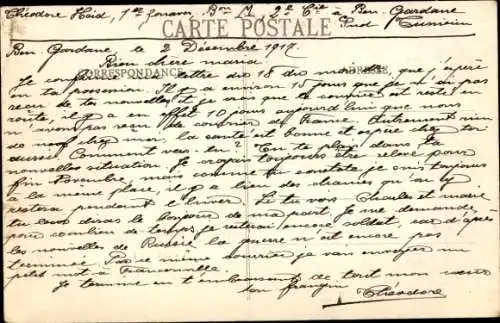 Théodore Hoid, 1er Zouaves, Bon M, 2e Cie à Ben Gardane
CARTE POSTALE
Sud Tunisien
Ben Gardane le 2 Décembre 1917
Bien chère maria
CORRESPONDANCE
ADRESSE
Je confirme lettre du 18 du mois dr, que j'espère
en ta possession. Il y a environ 15 jours que je n'ai pas
reçu de tes nouvelles et je crois que le courrier est resté en
route, il y a en effet 10 jours aujourd'hui que nous
n'avons pas reçu de courrier de France. Autrement rien
de neuf chez moi, la santé est bonne et espère chez toi
de même. Comment vas-tu ? En te plais dans ta
nouvelle situation. Je croyais toujours être relevé pour
fin Novembre, mais comme tu constate je suis toujours
à la même place, il y a bien des chances qu'on y
restera pendant l'hiver. Si tu vois Charles et marie
tu leur diras le bonjour de ma part. Je me demande
pour combien de temps je resterai encore soldat, car d'après
les nouvelles de Russie la guerre n'est encore pas
terminée. Par ce même courrier je vais envoyer un
petit mot à Franconville.
Je termine en t'embrassant de tout mon cœur
ton frangin
Théodore